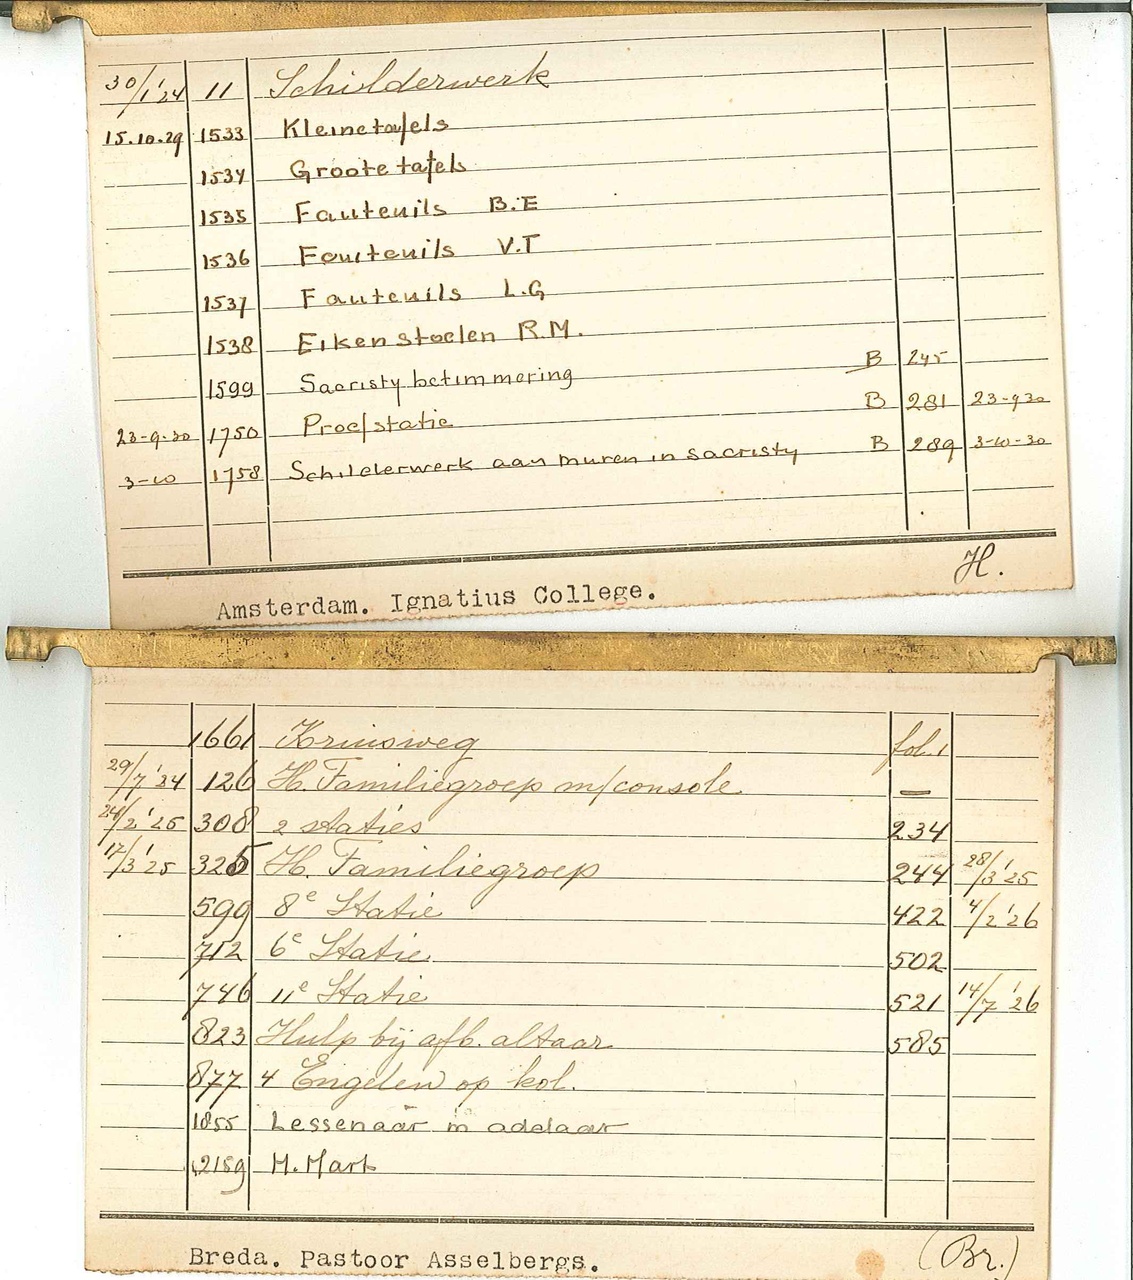 30/1 '24 11 Schilderwerk
15.10.29 1533 Kleine tafels
1534 Groote tafels
1535 Fauteuils B.E
1536 Fauteuils V.T
1537 Fauteuils L.G
1538 Eiken stoelen R.M.
1599 Sacristy betimmering B 245
23-9-30 1750 Proefstatie B 281 23-9 30
3-10 1758 Schilderwerk aan muren in sacristy B 289 3-10-30
H.
Amsterdam. Ignatius College.
1661 Kruisweg fol. 1
29/7 '24 126 H. Familiegroep m/console —
24/2 '25 308 2 staties 234
17/3 '25 325 H. Familiegroep 244 28/3 '25
599 8e Statie 422 4/2 '26
712 6e Statie 502
746 11e Statie 521 14/7 '26
823 Hulp bij afb. altaar 585
877 4 Engelen op kol.
1855 Lessenaar m adelaar
2159 H. Hart
(Br.)
Breda. Pastoor Asselbergs.